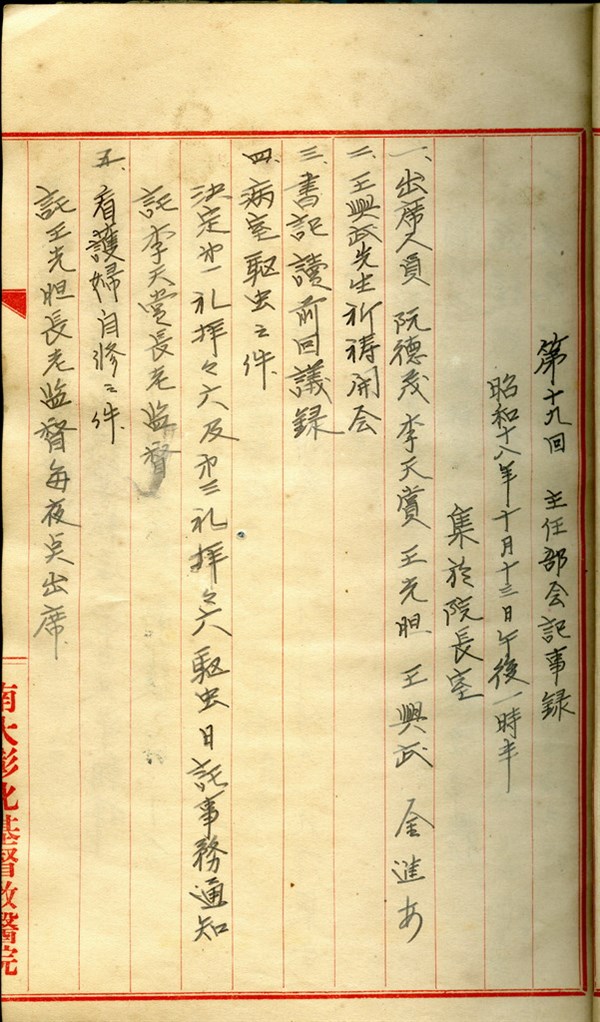 第十九回 主任部会記事録
昭和十八年十月十三日午後一時半
集於院長室
一、出席人員 阮德茂 李天賞 王光胆 王興武 金進安
二、王興武先生祈祷開会
三、書記讀前回議録
四、病室駆虫之件
決定第一礼拝々六及第三礼拝々六駆虫日託事務通知
託李天賞長老监督
五、看護婦自修之件
託王光胆長老监督每夜点出席
南大彰化基督教醫院